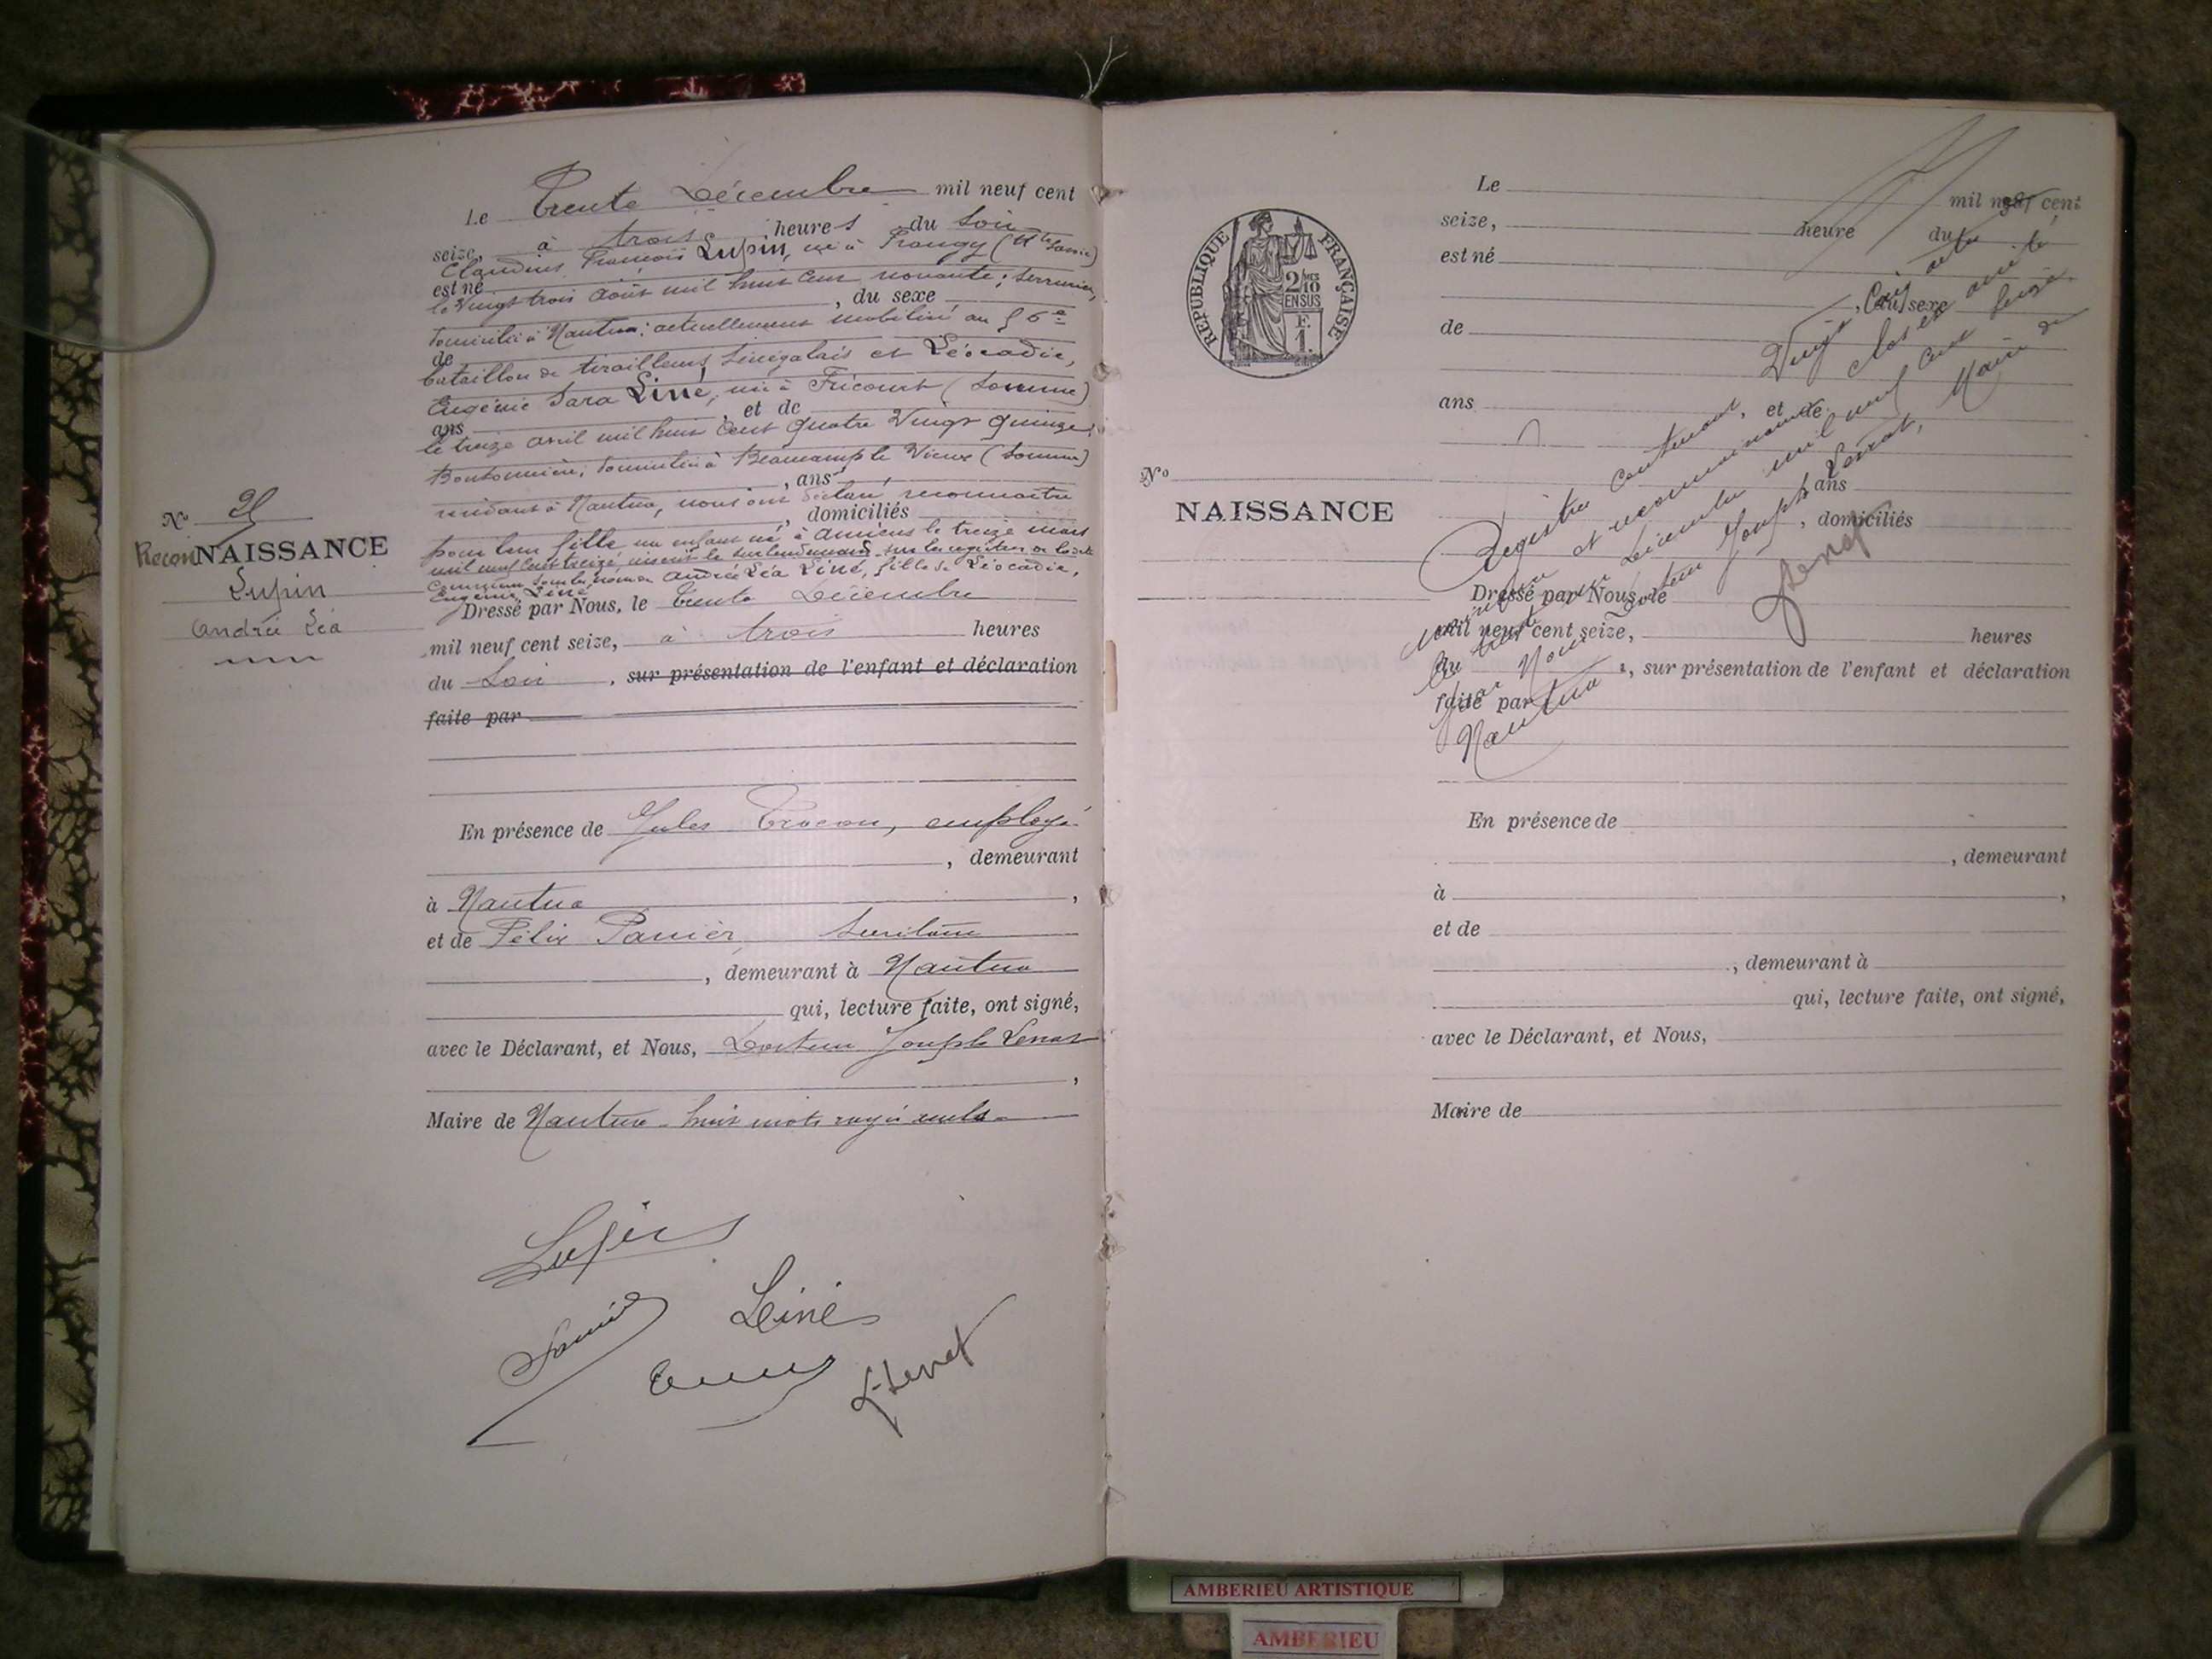 Le Trente Décembre mil neuf cent
seize, à trois heures du soir
Claudius François Lupin, né à Frangy (Hte Savoie)
est né
le Vingt trois août mil huit cent nonante; serrurier,
, du sexe
domicilié à Nantua; actuellement mobilisé au 56e
de
bataillon de tirailleurs sénégalais et Léocadie,
Eugénie Sara Liné, née à Fricourt (Somme)
ans, et de
le treize avril mil huit cent quatre Vingt quinze,
Boutonnière, domiciliée à Beaucamp le Vieux (Somme)
, ans
résidant à Nantua, nous ont déclaré reconnaitre
, domiciliés
pour leur fille un enfant né à Amiens le treize mars
mil neuf cent treize, inscrit le surlendemain sur les registres de la dite
commune sous les noms de Andrée Léa Liné, fille de Léocadie,
Eugénie Liné
Dressé par Nous, le trente Décembre
mil neuf cent seize, à trois heures
du soir, sur présentation de l'enfant et déclaration
faite par
En présence de Jules employé
, demeurant
à Nantua,
et de Félix Panier, Secrétaire
, demeurant à Nantua
qui, lecture faite, ont signé,
avec le Déclarant, et Nous, Docteur Joseph
,
Maire de Nantua - huit mots rayés nuls -
Lupin
Panier
Liné
N° 25
ReconNAISSANCE
Lupin
Andrée Léa
RÉPUBLIQUE FRANÇAISE
2/10
EN SUS
F.
1.
N°
NAISSANCE
Le mil neuf cent
seize, heure du
est né
, du sexe
de
ans, et de
, ans
, domiciliés
Dressé par Nous, le
mil neuf cent seize, heures
du, sur présentation de l'enfant et déclaration
faite par
Registre contenant Vingt Cinq actes
et reconnaissances clos et arrêté
le trente un Décembre mil neuf cent seize,
par Nous Docteur Joseph Maire de
Nantua
En présence de
, demeurant
à,
et de
, demeurant à
qui, lecture faite, ont signé,
avec le Déclarant, et Nous,
Maire de
AMBERIEU ARTISTIQUE
AMBERIEU